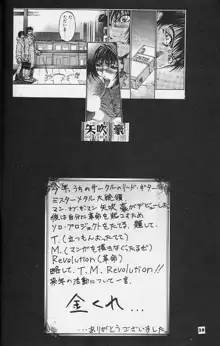 矢吹 豪
今年、うちのサークルのリード・ギターの
ミスターメタル大統領
矢吹豪がデビューした
彼は自分に革命を起こすため
ソロ・プロジェクトをたてる、題して
T.(立つもんおったてて)
M.(マンガを描きなぐるぜ)
Revolution(革命)
略して、T.M.Revolution!!
来年の活動について一言、
金くれ…
…ありがとうございました